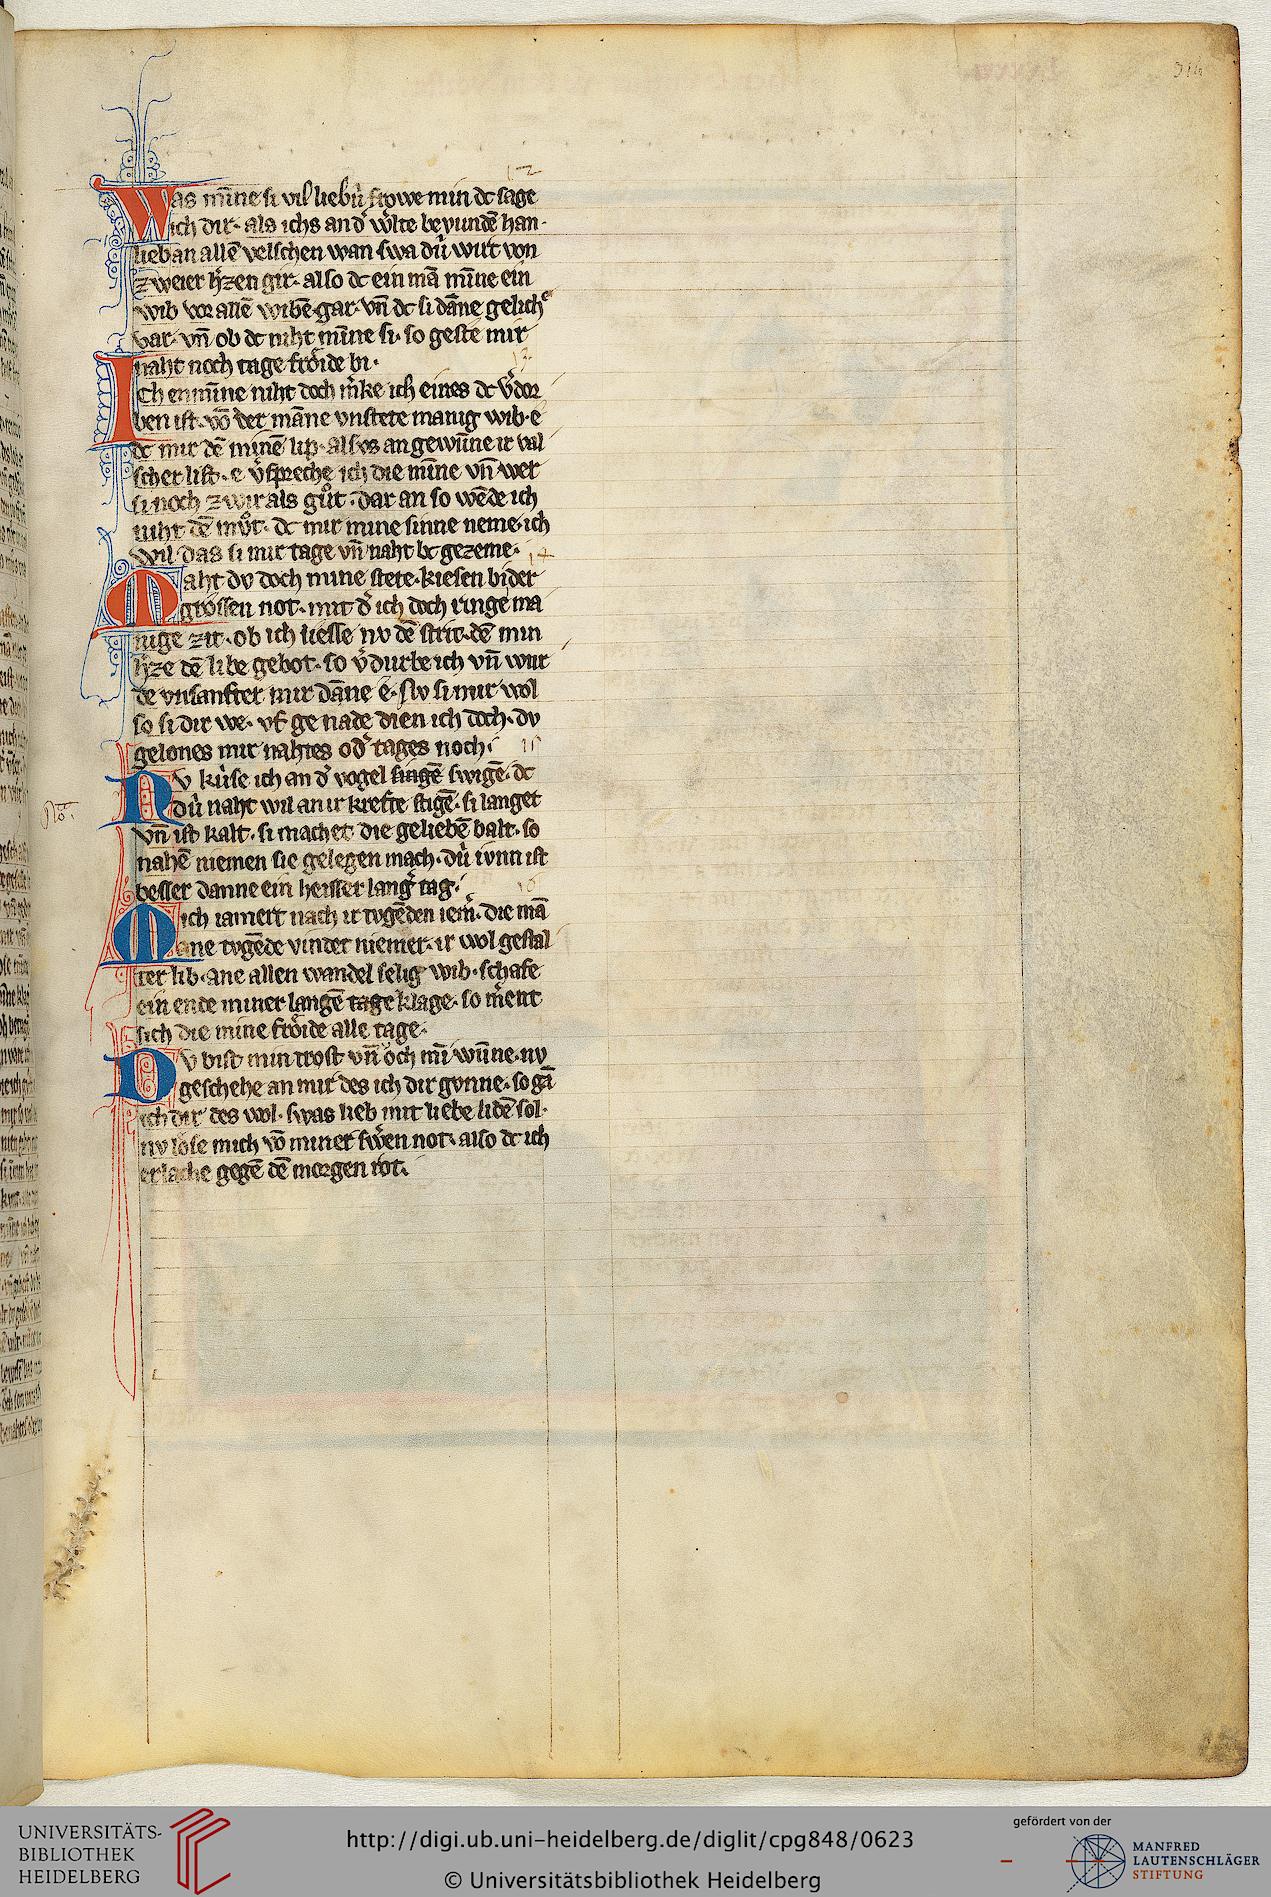 314
12
Was mīne si vil liebú frowe min dc sage
ich dir· als ichs an d̾ w̾lte bevundē han·
lieb an allē velschen wan swa dú wirt von
zweier h̾zen gir· also dc ein mā mīne ein
wib vor allē wibē gar· vn̄ dc si dāne gelich
var· vn̄ ob dc niht mīne si· so geste mir
naht noch tage fröide bi·
13
Ich enmīne niht doch m̾ke ich eines dc v̾dor
ben ist· vō der māne vnstete manig wib· e
dc mir dē minē lip· als es an gewūne ir val
scher list· e v̾spreche ich die mīne vn̄ wer
si noch zwir als gůt· dar an so wēde ich
niht dē můt· dc mir mine sinne neme· ich
wil das si mir tage vn̄ naht bc gezeme·
14
Maht dv doch mine stete· kiesen bi der
grossen not· mit d̾ ich doch ringe ma
nige zit· ob ich liesse nv dē stric· dē min
h̾ze dē libe gebot· so v̾durbe ich vn̄ wur
de vnsanfter mir dāne ē· Nv si mir wol
so si dir we· vf genade dien ich doch· dv
gelones mir nahtes od̾ tages noch·
15
Nv kúse ich an d̾ vogel singē swigē· dc
dú naht wil an ir krefte stigē· si langet
vn̄ ist kalt· si machet die geliebē balt· so
nahē niemen sie gelegen mach· dú ivnn ist
besser danne ein heisser lang̾ tag·
16
Mich iamert nach ir tvgēden iem̾· die mā
ane tvgēde vindet niemer· ir wol gestal
ter lib· ane allen wandel selig wib· schafe
ein ende miner langē tage klage· so m̾ent
sich die mine fröide alle tage·
Dv bist min trost vn̄ öch mī wūne· nv
geschehe an mir des ich dir gvnne· so gā
ich dir des wol· swas lieb mit liebe lidē sol·
nv löse mich vō miner sw̾en not· also dc ich
erlache gegē dē morgen rot·
UNIVERSITÄTS-
BIBLIOTHEK
HEIDELBERG
http://digi.ub.uni-heidelberg.de/diglit/cpg848/0623
© Universitätsbibliothek Heidelberg
gefördert von der
MANFRED
LAUTENSCHLÄGER
STIFTUNG